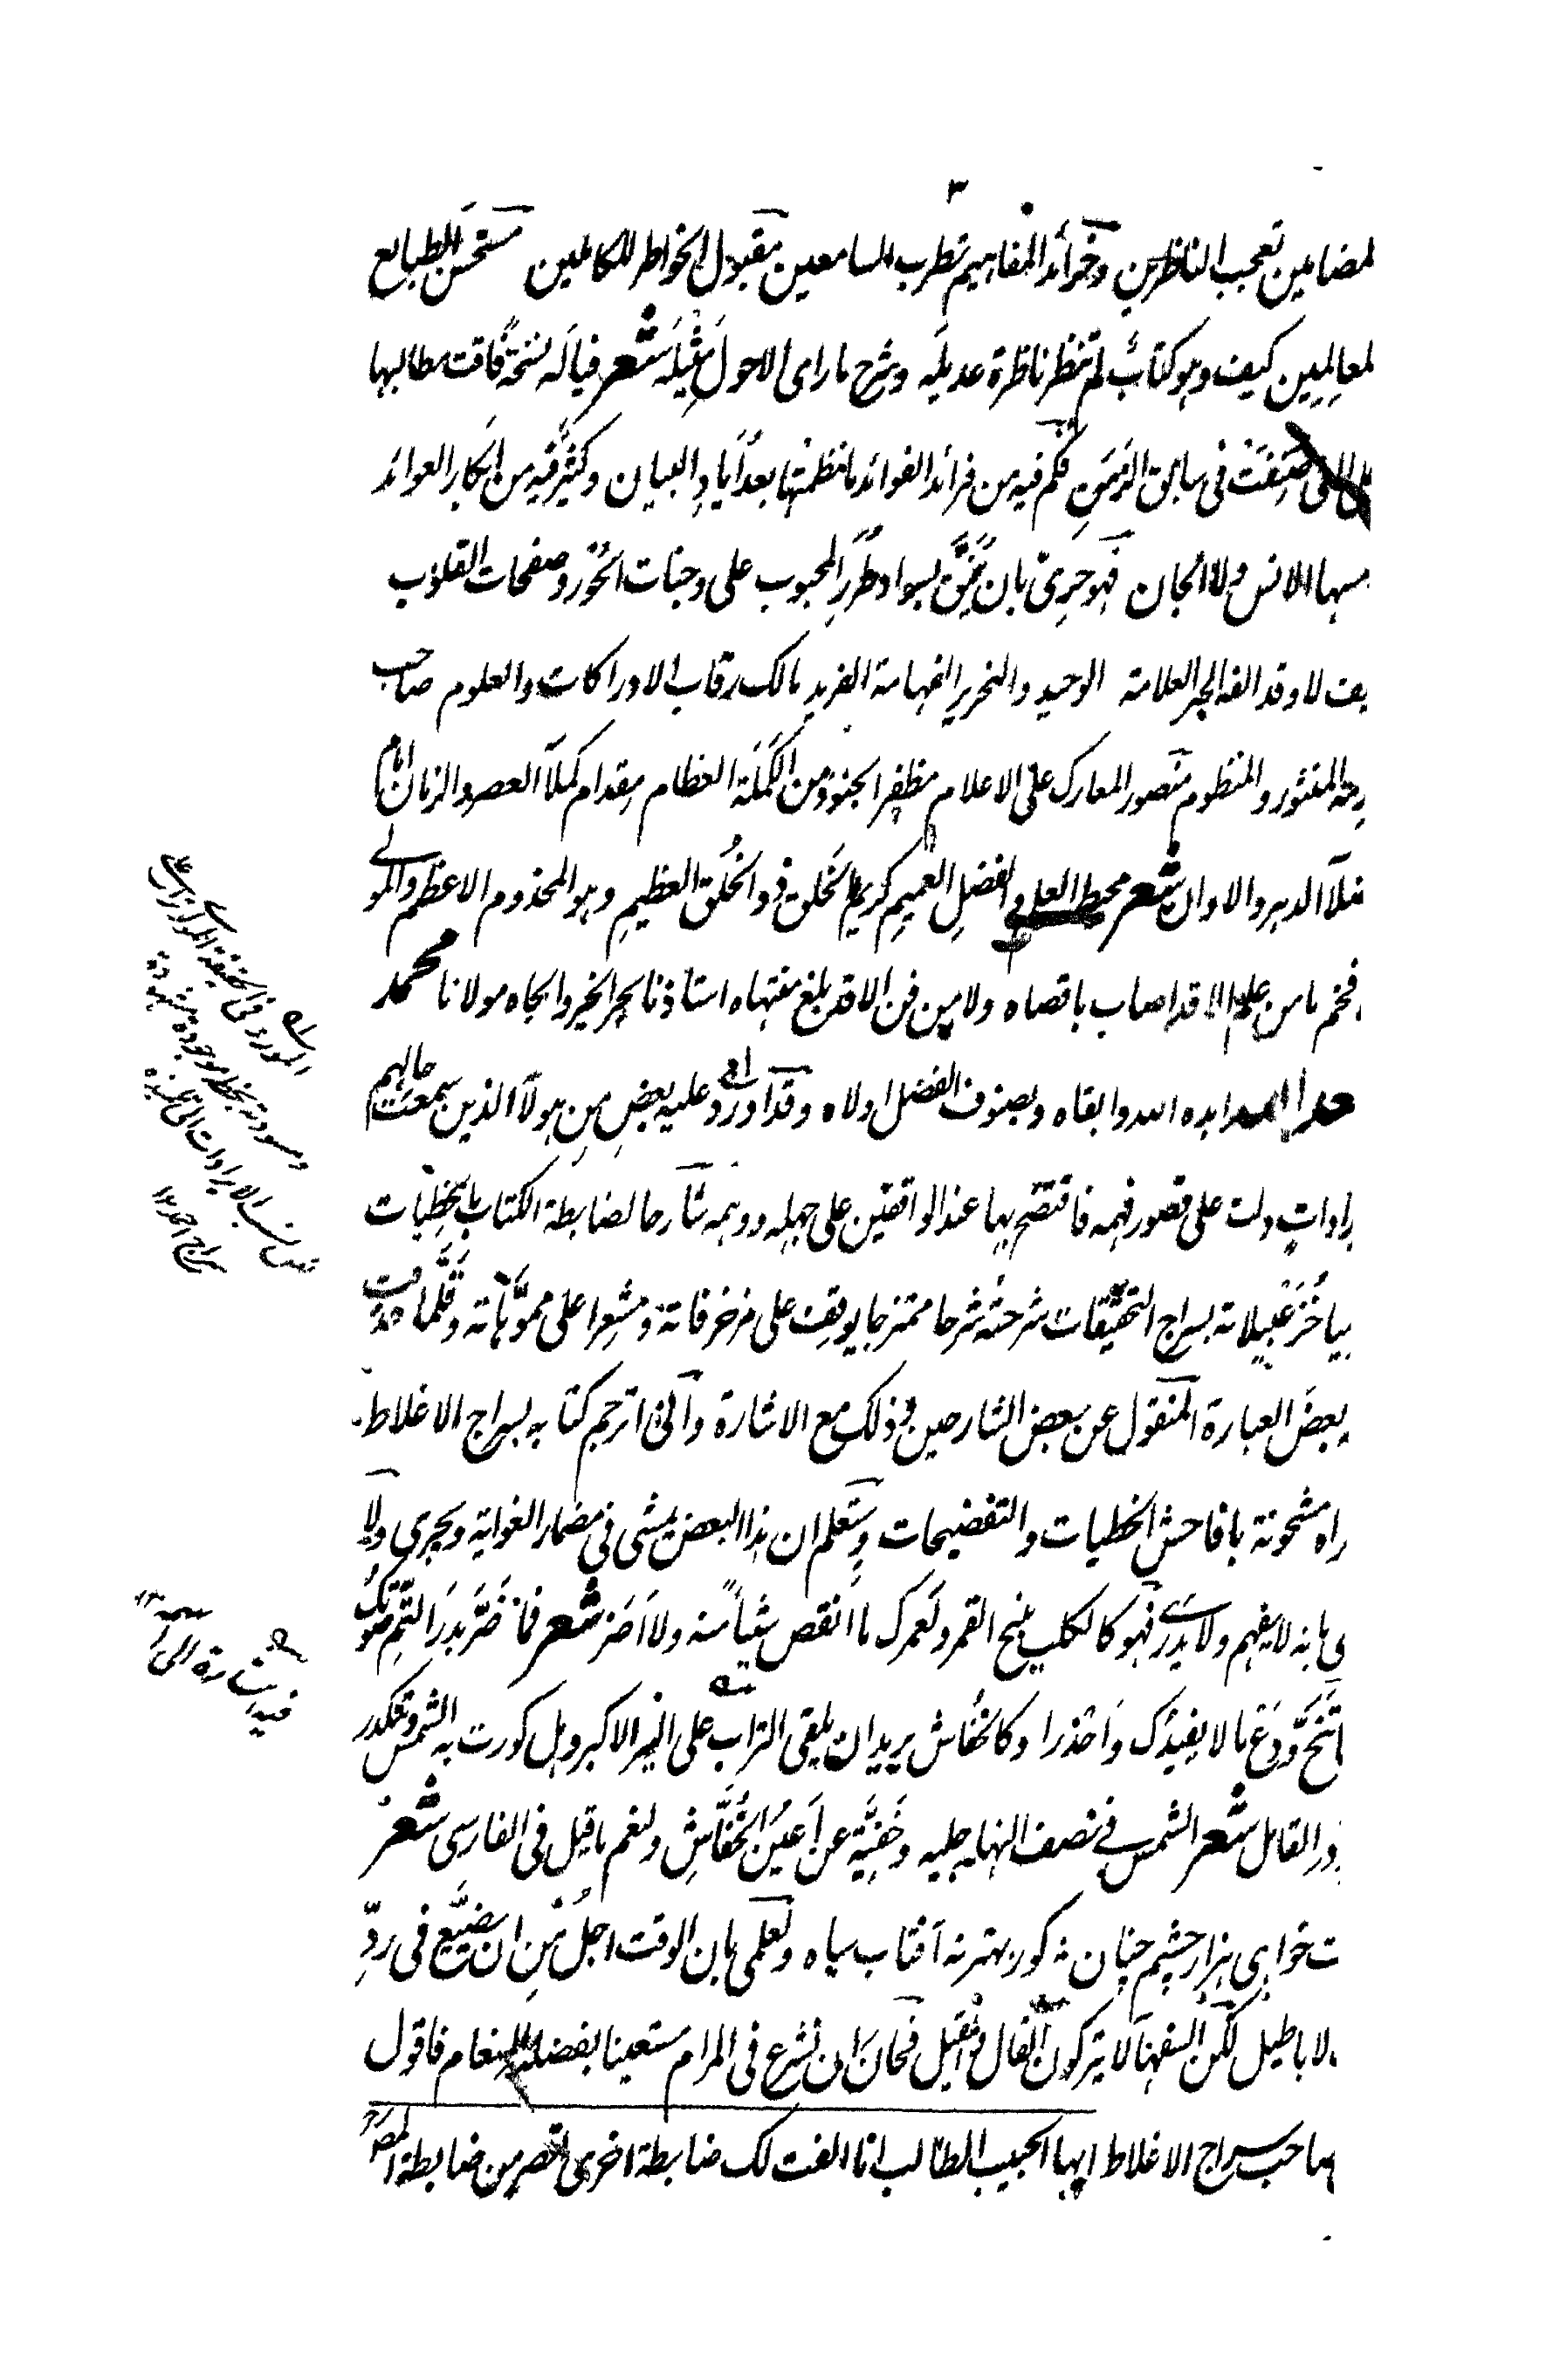 ٣
لمضامين تعجب الناظرين وخرائد المفاهيم تطرب السامعين مقبول الخواطر للكاملين مستحسن الطبايع
لمعالمين كيف وهو كتاب لم تنظر ناظرة عديله وشرح ما راى الاحول مثيله شعر فيا له نسخة فاقت مطالبها
صنفت فى سابق الزمن فكم فيه من فرائد الفوائد ما نظمتها بعد اياد البيان وكثر فيه من ابكار العوائد
مسها الانس ولا الجان فهو حرى بان ينمق بسواد طرر المحبوب على وجنات الحور وصفحات القلوب
يف لا وقد الفه الحبر العلامة الوحيد والنحرير الفهامة الفريد مالك رقاب الادراكات والعلوم صاحب
المنثور والمنظوم منصور المعارك على الاعلام مظفر الجنود من الكملة العظام مقدام كملآ العصر والزمان امام
ضلآ الدهر والاوان شعر محيط العلم الفضل العميم كريم الخلق ذو الخلق العظيم وهو المخدوم الاعظم والمولى
فخم ما من علم الا قد اصاب باقصاه ولا من فن الا قد بلغ منتهاه استاذنا بحر الخير والجاه مولانا محمد
ابده الله وابقاه وبصنوف الفضل اولاه وقد اورد عليه بعض من هولآ الذين سمعت حالهم
رادات دلت على قصور فهمه فافتضح بها عند الواقفين على جهله ووهمه شارحا لضابطة الكتاب بالتخطيات
بيا خزعبيلاته بسراج التحقيقات شرحته شرحا ممتزجا يوقف على مزخرفاته ومشعرا على مموهاته وقلما
بعض العبارة المنقول عن بعض الشارحين وذلك مع الاشارة وآنى اترجم كتابه بسراج الاغلاط
راه مشحونة بافاحش الخطيات والتفضيحات وستعلم ان هذا البعض يمشى فى مضمار الغواية ويجرى ولا
بانه لا يفهم ولا يدرى فهو كالكلب ينبح القمر ولعمرك ما انقص شيأ منه ولا اضر شعر فما ضر بدر التم صوتك
تنح ودع ما لا يفيدك واحذرا وكالخفاش يريد ان يلقى التراب على النير الاكبر وهل كورت به الشمس وتنكدر
در القائل شعر الشمس فى نصف النهار جلية وخفية عن اعين الخفاش ولنعم ما قيل فى الفارسى شعر
ت خواهى هزار چشم چنان ÷ كور بهتر نه آفتاب سياه ولعلمى بان الوقت اجل من ان يضيع فى رد
لاباطيل لكن السفهآ لا يتركون القال والقيل فحان ان نشرع فى المرام مستعينا بفضل المنعام فاقول
صاحب سراج الاغلاط ايها الحبيب الطالب انا الفت لك ضابطة اخرى اخصر من ضابطة المص
المورد فى الحقيقة
ومسودته بخطه موجودة
الايرادات
سراج احمد ١٢
فيه اشارة الى